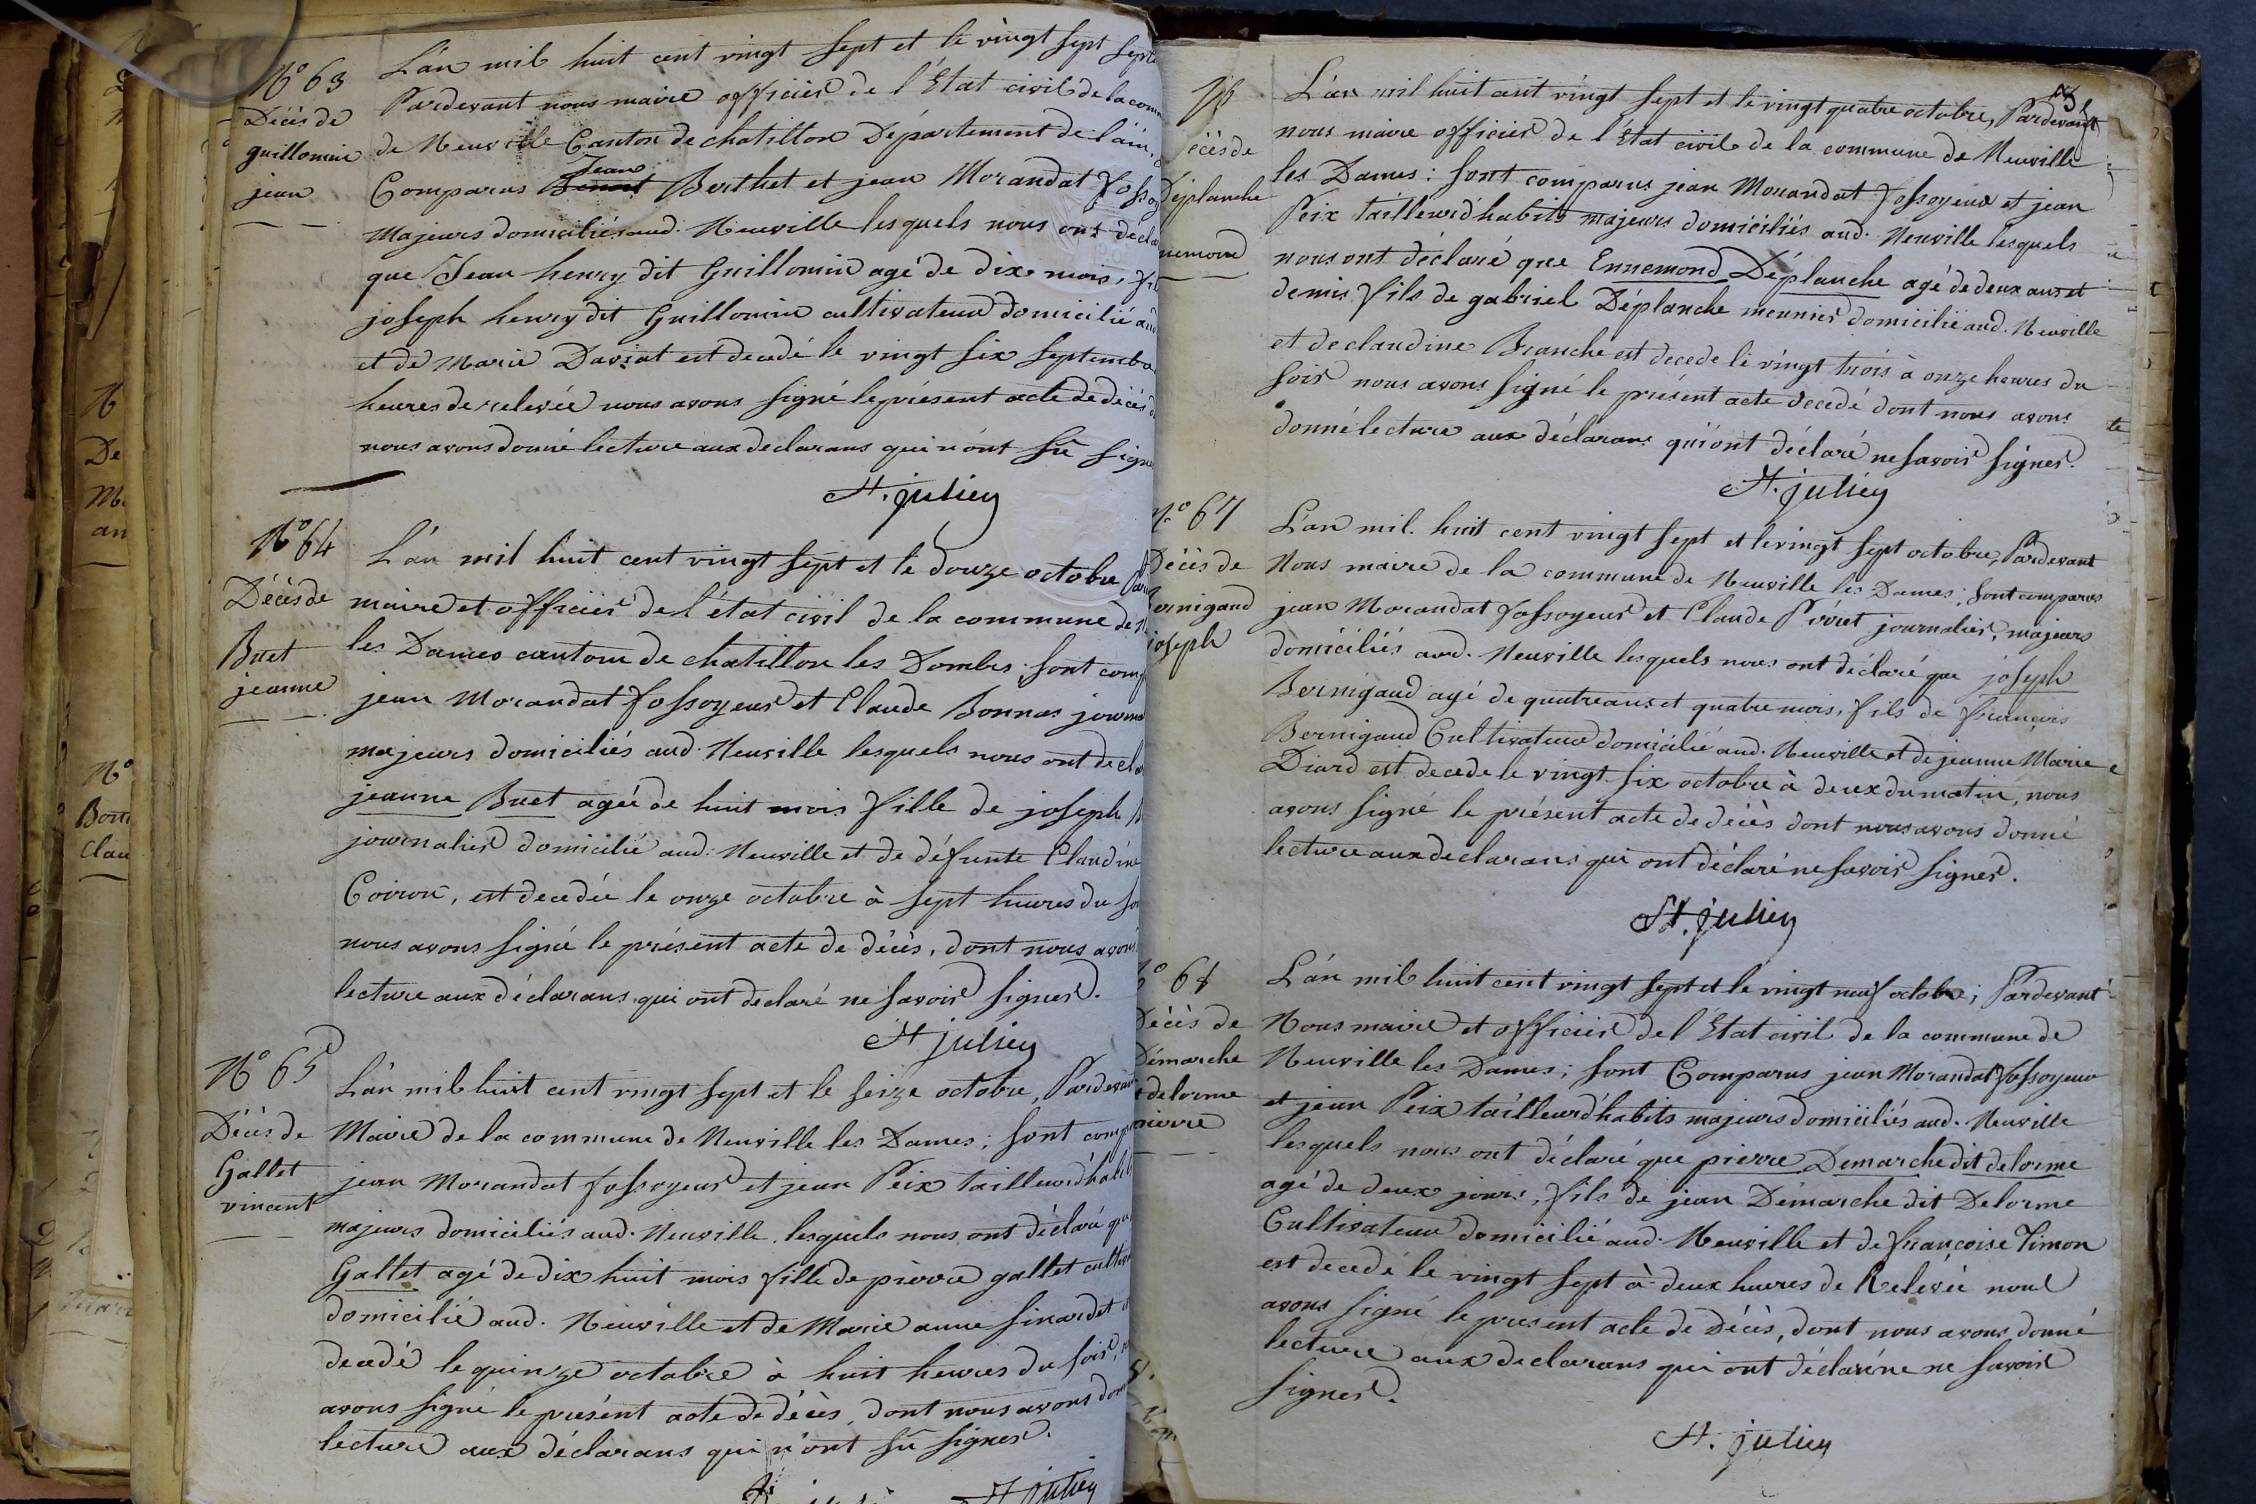 N° 63
Décès de
guillomin
jean
L'an mil huit cent vingt sept et le vingt sept sept
Pardevant nous maire officier de l'Etat civil de la com
de Neuville Canton de chatillon Département de l'ain,
Comparus Jean Berthet et jean Morandat fosso
majeurs domiciliés aud. Neuville lesquels nous ont décla
que Jean henry dit Guillomin agé de dix mois, fi
joseph henry dit Guillomin cultivateur domicilié au
et de Marie Daviat est decedé le vingt six septemb
heures de relevée nous avons signé le présent acte de décés
nous avons donné lecture aux declarans qui n'ont sû sign
St. julien
N° 64
Décès de
Buet
jeanne
L'an mil huit cent vingt sept et le douze octobre Par
maire et officier de l'état civil de la commune de
les Dames canton de chatillon les Dombes; sont comp
jean Morandat fossoyeur et Claude Bonnas journ
majeurs domiciliés aud. Neuville lesquels nous ont decla
jeanne Buet agée de huit mois fille de joseph
journalier domicilié aud. Neuville et de défunte Claudine
Coiron, est decedée le onze octobre à sept heures du so
nous avons signé le présent acte de décès, dont nous avons
lecture aux déclarans qui ont declaré ne savoir signer.
St julien
N° 65
Décès de
Gallet
vincent
L'an mil huit cent vingt sept et le seize octobre, Pardevan
Maire de la commune de Neuville les Dames; sont comp
jean Morandat fossoyeur et jean Peix tailleur d'habi
majeurs domiciliés aud. Neuville lesquels nous ont déclaré que
Gallet agé de dix huit mois fille de pierre gallet cultiv
domicilié aud. Neuville et de Marie anne Sinardet
decedé le quinze octobre à huit heures du soir,
avons signé le présent acte de décès, dont nous avons don
lecture aux déclarans qui n'ont sû signer.
St julien
écès de
Déplanche
nemond
L'an mil huit cent vingt sept et le vingt quatre octobre, Pardevant
nous maire officier de l'Etat civil de la commune de Neuville
les Dames: sont comparus jean Morandat fossoyeur et jean
Peix tailleur d'habits majeurs domiciliés aud. Neuville lesquels
nous ont déclaré que Ennemond Déplanche agé de deux ans et
demis fils de gabriel Déplanche meunier domicilié aud. Neuville
et de claudine Branche est decede le vingt trois à onze heures du
soir nous avons signé le présent acte decedé dont nous avons
donné lecture aux déclarans qui ont déclaré ne savoir signer.
St. julien
N° 67
Décès de
Bernigaud
joseph
L'an mil huit cent vingt sept et le vingt sept octobre, Pardevant
Nous maire de la commune de Neuville les Dames; sont comparus
jean Morandat fossoyeur et Claude Pivret journalier, majeurs
domiciliés aud. Neuville lesquels nous ont déclaré que joseph
Bernigaud agé de quatre ans et quatre mois, fils de françois
Bernigaud Cultivateur domicilié aud. Neuville et de jeanne Marie
Diard est decede le vingt six octobre à deux du matin, nous
avons signé le présent acte de décès dont nous avons donné
lecture aux declarans qui ont déclaré ne savoir signer.
St. julien
N° 68
Décès de
Démarche
dit delorme
pierre
L'an mil huit cent vingt sept et le vingt neuf octobre; Pardevant
Nous maire et officier de l'Etat civil de la commune de
Neuville les Dames; sont Comparus jean Morandat fossoyeur
et jean Peix tailleur d'habits majeurs domiciliés aud. Neuville
lesquels nous ont déclaré que pierre Demarche dit delorme
agé de deux jours, fils de jean Démarche dit Delorme
Cultivateur domicilié aud. Neuville et de françoise Timon
est decedé le vingt sept à deux heures de Relevée nous
avons signé le present acte de Décès, dont nous avons donné
lecture aux declarans qui ont déclaré ne ne savoir
signer.
St. julien